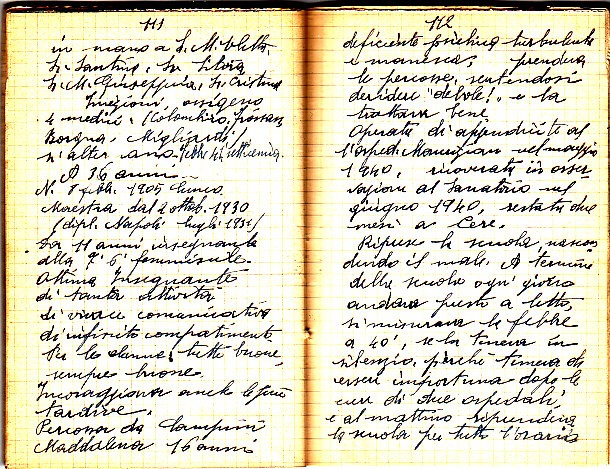 111
in mano a S. M.
Sr. Santina, Sr. Silvia
Sr. M. Giuseppina, Sr. Cristina
Iniezioni, ossigeno
4 medici, (Colombino,
Borgna, Migliardi)
A 36 anni
N. 8 1905 Cuneo
Maestra dal 2 ottob. 1930
(dipl. Napoli luglio 1934)
Da 11 anni insegnante
alla femminile
Ottima Insegnante
di tanta attività
di vivace comunicativa
di infinito compatimento
Per le alunne tutte buone,
sempre buone.
Incoraggiava anche le più
tardive.
Percossa da
Maddalena 16 anni
112
deficiente psichica turbolenta
e manesca, prendeva
le percosse, sentendosi
deridere "debole!" e la
trattava bene
Operata di appendicite al
l'osped. nel maggio
1940, ricoverata in osser
vazione al Sanatorio nel
giugno 1940, restata due
mesi a Cere.
Riprese la scuola, nascon
dendo il male. A termine
della scuola ogni giorno
andava presto a letto,
si misurava la febbre
a 40°, se la teneva in
silenzio, perché temeva di
esseri importuna dopo le
cure di due ospedali
e al mattino riprendeva
la scuola per tutto l'orario